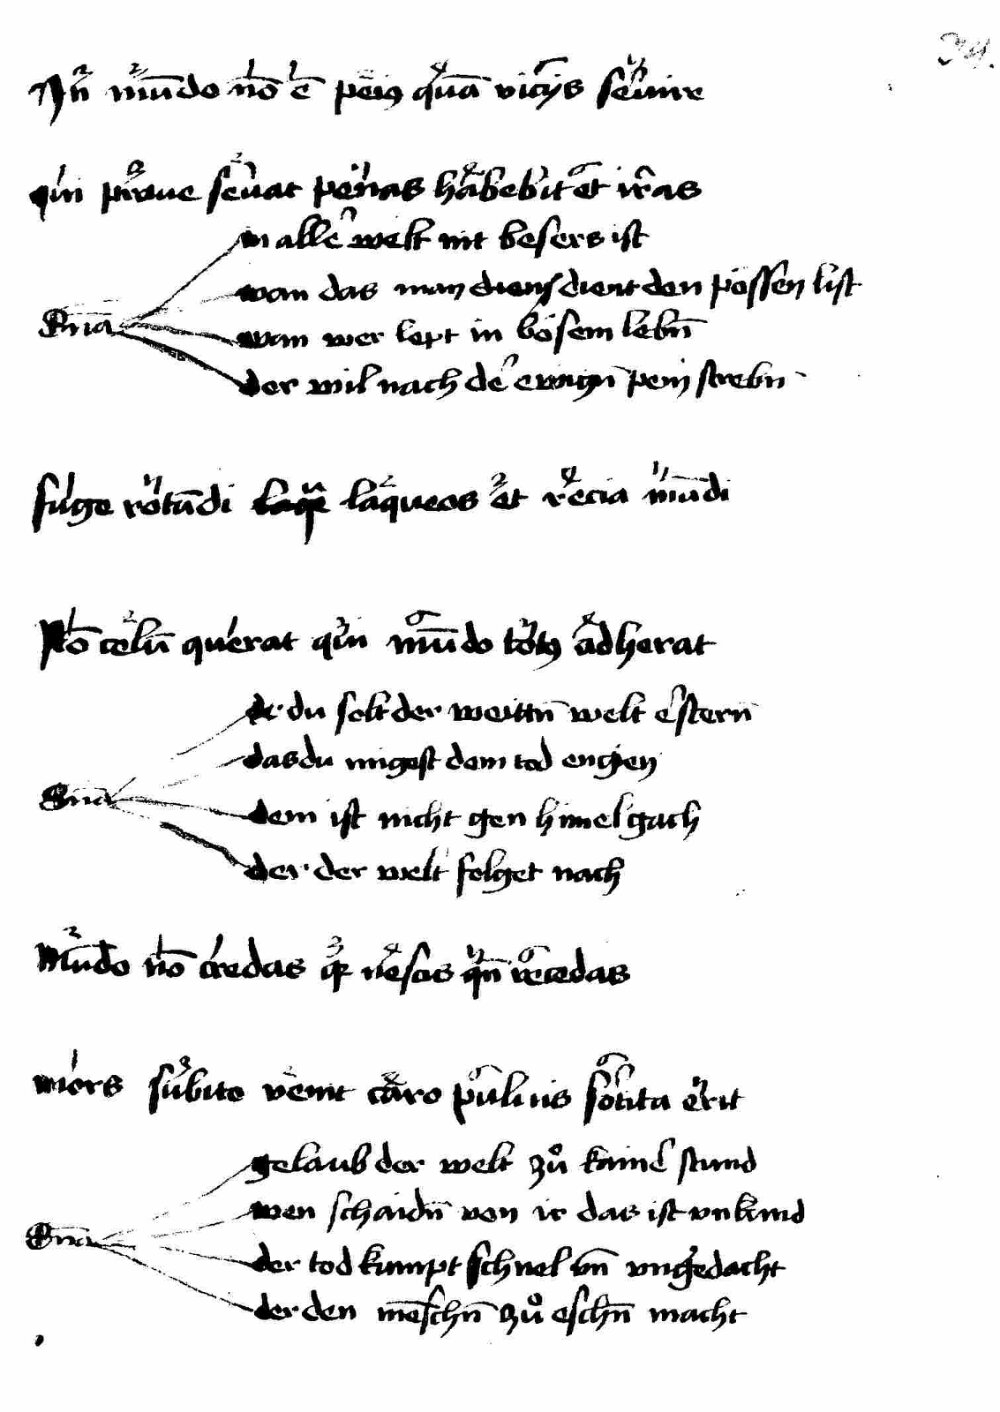 34.
In mūdo nō ē peiꝰ quā vicijs seruire
qui praue seruat penas habebit et iras
in aller welt nit besers ist
wan das man dient den pössen list
Gͫna
wan wer lept in bösem lebn̄
der wil nach der ewign̄ pein strebn
fuge rotūdi laqueos et recia mūdi
Nō celū querat qui mūdo totꝰ adherat
du solt der weittn̄ welt
das du mügest dem tod engen
dem ist nicht gen himel gach
der der welt folget nach
Mūdo nō credas nescis qn̄ recedas
mors subito venit caro puluis erit
gelaub der welt zů kainer stund
wen schaidn̄ von ir das ist vnkund
der tod kumpt schnel vn̄ vngedacht
der den mēschn̄ zů eschn̄ macht